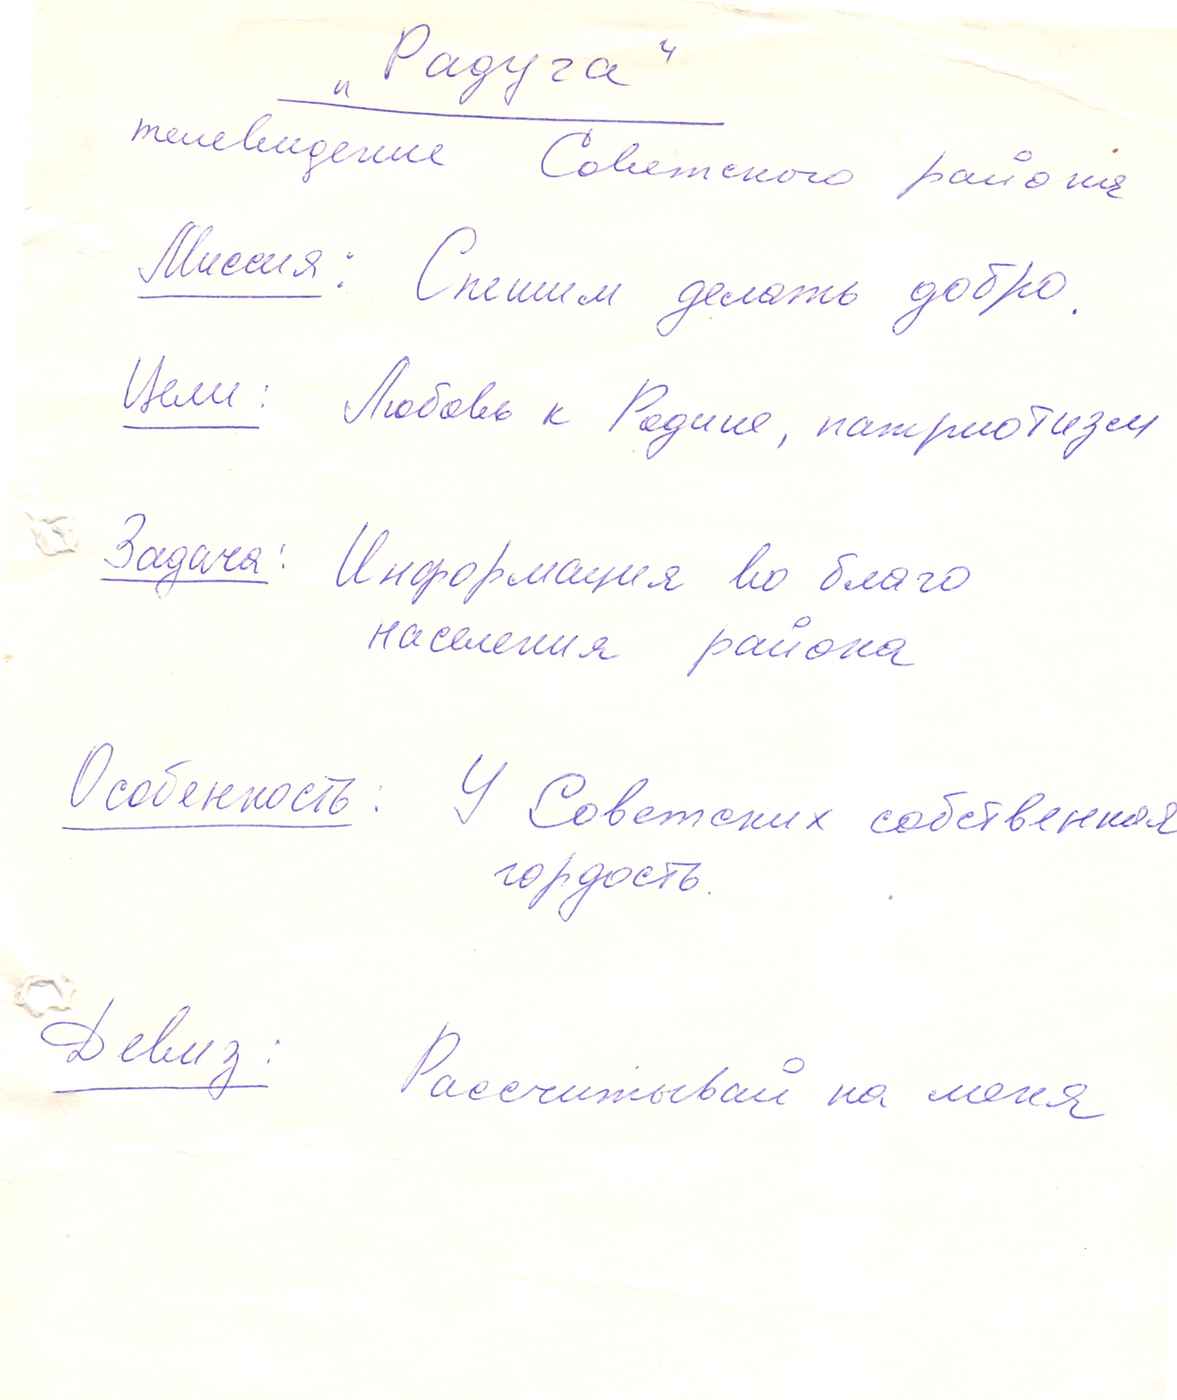 „Радуга“
телевидение Советского района
Миссия: Спешим делать добро.
Цели: Любовь к Родине, патриотизм
Задача: Информация во благо
населения района
Особенность: У Советских собственная
гордость.
Девиз: Рассчитывай на меня